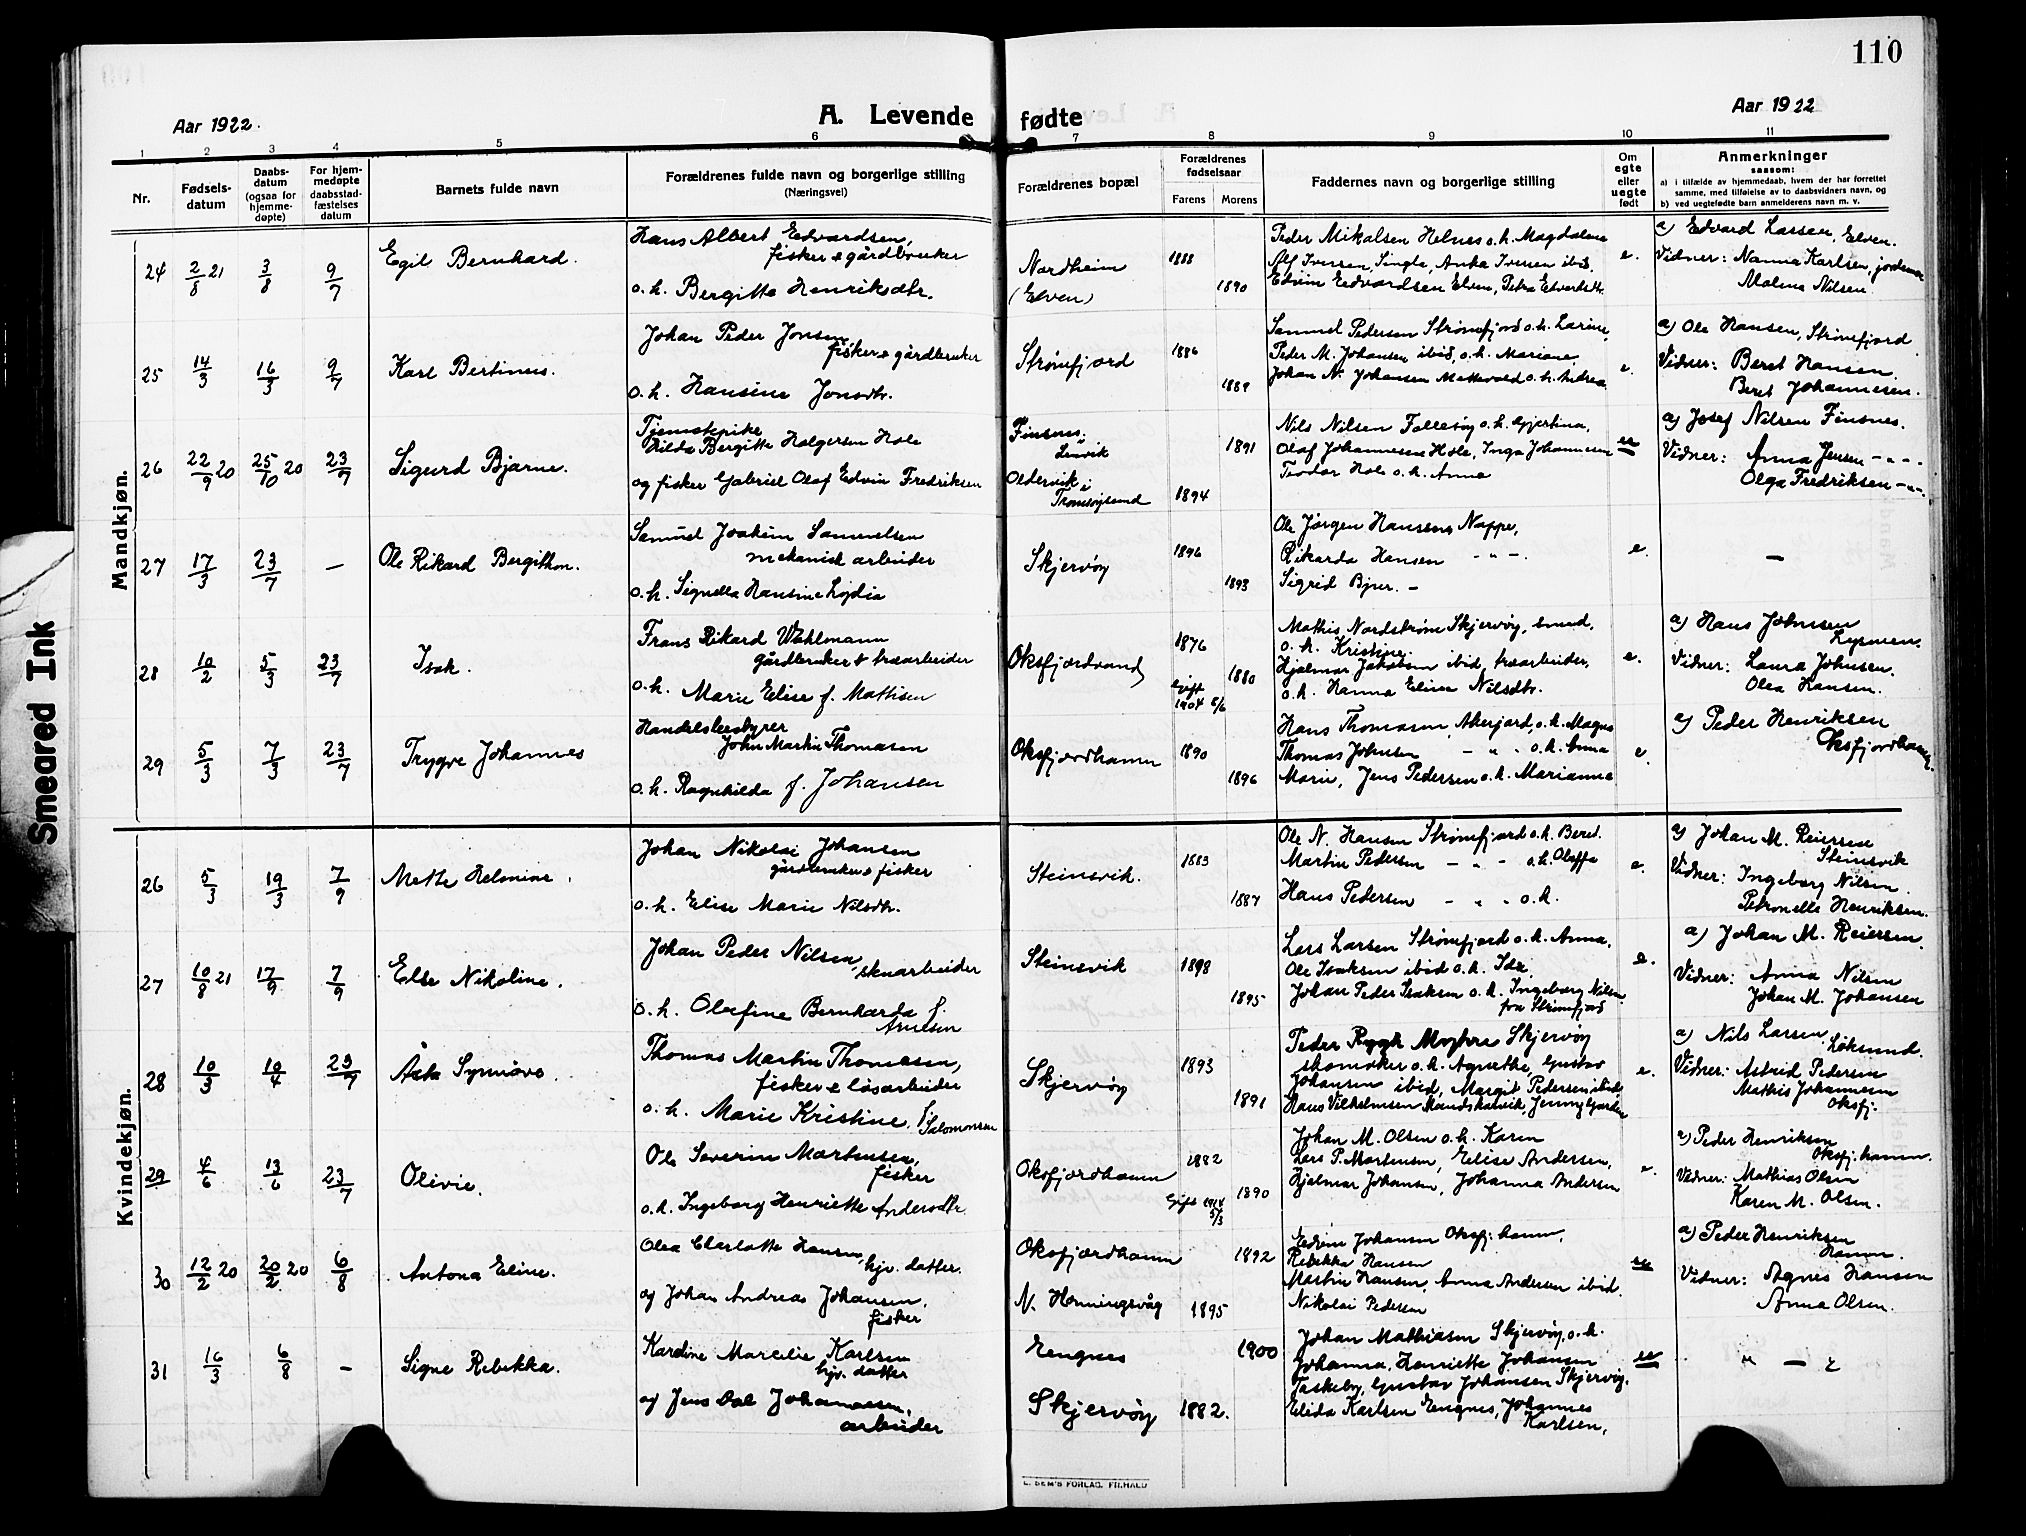 110
Aar 1922.
A. Levende fødte
Aar 1922
1 2 3 4 5 6 7 8 9 10 11
Nr.
Fødsels-
datum
Daabs-
datum
(ogsaa for
hjemme-
døpte)
For hjem-
medøpte
daabsstad-
fæstelses
datum
Barnets fulde navn
Forældrenes fulde navn og borgerlige stilling
(Næringsvei)
Forældrenes bopæl
Forældrenes
fødselsaar
Farens Morens
Faddernes navn og borgerlige stilling
Om
egte
eller
uegte
født
Anmerkninger
saasom:
a) i tilfælde av hjemmedaab, hvem der har forrettet
samme, med tilføielse av to daabsvidners navn, og
b) ved uegtefødte barn anmelderens navn m. v.
Mandkjøn.
24 2/8 21 3/8 9/7 Egil Bernhard.
Hans Albert Edvardsen,
fisker & gårdbruker
o. h. Bergitte Henriksdtr.
Nordheim
(Elven)
1888
1890
Peder Mikalsen Helnes o. h. Magdalene
Alf Iversen, Singla, Anka Iversen ibid,
Edvin Edvardsen Elven, Petra Edvardsdtr.
e.
a) Edvard Lassen, Elven.
Vidner: Nanna Karlsen, jordemor
Malena Nilsen.
25 14/3 16/3 9/7 Karl Bertinus.
Johan Peder Jonsen
fisker & gårdbruker
o. h. Hansine Jonsdtr.
Strømfjord
1886
1889
Samuel Pedersen Strømfjord o. h. Larine,
Peder M. Johansen ibid, o. h. Mariane,
Johan N. Johansen Mettevold o. h. Andrea
e.
a) Ole Hansen, Strømfjord
Vidner: Beret Hansen
Beret Johannesen.
26 22/9 20 25/10 20 23/7 Sigurd Bjarne.
Tjenestepike
Hilda Bergitte Holgersen Hole
og fisker Gabriel Olaf Edvin Fredriksen
Finsnes,
Lenvik
Oldervik i
Tromsøysund
1891
1894
Nils Nilsen Follesøy o. h. Gjertina,
Olaf Johannesen Hole, Inga Johannesen
Teodor Hole o. h. Anna
ue
a) Josef Nilsen Finsnes.
Vidner: Anna Jensen - " -
Olga Fredriksen - " -
27 17/3 23/7 — Ole Rikard Bergithon.
Samuel Joakim Samuelsen
mekanisk arbeider
o. h. Signella Hansine Lydia
Skjervøy
1896
1893
Ole Jørgen Hansens Nappe,
Rikarda Hansen - " -
Sigrid -
e.
—
28 10/2 5/3 23/7 Isak.
Frans Rikard Wahlmann
gårdbruker & træarbeider
o. h. Marie Elise f. Mattisen
Oksfjordvand
1876
1880
Gift
1904 5/6
Mathis Nordstrøm Skjervøy, smed,
o. h. Kristine.
Hjalmar Jakobsen ibid, træarbeider,
o. h. Hanna Elina Nilsdtr.
e.
a) Hans Johnsen
Vidner: Laura Johnsen.
Olea Hansen.
29 5/3 7/3 23/7 Trygve Johannes
Handelsbestyrer
John Martin Thomasen
o. h. Ragnhilda f. Johansen
Oksfjordhamn
1890
1896
Hans Thomasen Akerjord, o. h. Magna
Thomas Johnsen - " - o. h. Anna
Marie, Jens Pedersen o. h. Marianna
e.
a) Peder Henriksen
Oksfjordhamn.
Kvindekjøn.
26 5/3 19/3 7/9 Mette Helmine.
Johan Nikolai Johansen
gårdbruker & fisker
o. h. Elise Marie Nilsdtr.
Steinsvik.
1883
1887
Ole N. Hansen Strømfjord o. h. Beret.
Martin Pedersen - " - o. h. Oleffa
Hans Pedersen - " - o. h.
e.
a) Johan M. Reiersen
Steinsvik
Vidner: Ingeborg Nilsen.
Petronella Henriksen.
27 10/8 21 17/9 7/9 Else Nikoline.
Johan Peder Nilsen,
skoarbeider
o. h. Olefine Bernharda f.
Arnesen
Steinsvik
1898
1895
Lars Larsen Strømfjord o. h. Anna,
Ole Isaksen ibid o. h. Ida,
Johan Peder Isaksen o. h. Ingeborg Nilsen
fra Strømfjord
e.
a) Johan M. Reiersen.
Vidner: Anna Nilsen
Johan M. Johansen
28 10/3 10/4 23/7 Åsta Synnøve.
Thomas Martin Thomasen,
fisker & løsarbeider
o. h. Marie Kristine, f. Salomonsen
Skjervøy
1893
1891
Peder Rygh Skjervøy
skomaker o. h. Agnethe, Gustav
Johansen ibid, Margit Pedersen ibid,
Hans Vilhelmsen Jenny
e.
a) Nils Larsen,
Løksund.
Vidner: Astrid Pedersen
Mathis Johannesen
Oksfj.
29 4/6 13/6 23/7 Olivie.
Ole Severin Mortensen,
fisker
o. h. Ingeborg Henriette Andersdtr.
Oksfjordhamn
1882
1890
Gift 1914
5/3
Johan M. Olsen o. h. Karen
Lars P. Mortensen, Elise Andersen,
Hjalmar Johansen, Johanna Andersen
e.
a) Peder Henriksen
Oksfj. hamn.
Vidner: Mathias Olsen
Karen M. Olsen.
30 12/2 20 20/2 20 6/8 Antona Eline.
Olea Charlotte Hansen,
hjv. datter.
og Johan Andreas Johansen,
fisker
Oksfjordhamn
N. Honningsvåg
1892
1895
Edvin Johansen Oksfj. hamn,
Rebekka Hansen
Martin Hansen, Anna Andersen ibid.
Nikolai Pedersen
ue
a) Peder Henriksen
Hamn.
Vidner: Agnes Hansen
Anna Olsen.
31 16/3 6/8 — Signe Rebekka.
Karoline Marcelie Karlsen
hjv. datter
og Jens Dal Johannesen,
arbeider
Engnes
Skjervøy
1900
1882.
Johan Mathiasen Skjervøy, o. h.
Johanna, Henriette Johansen
Taskeby, Gustav Johansen Skjervøy.
Elida Karlsen Engnes, Johannes
Karlsen,
ue
" —
Smeared Ink
E. SEM'S FORLAG, FR.HALD